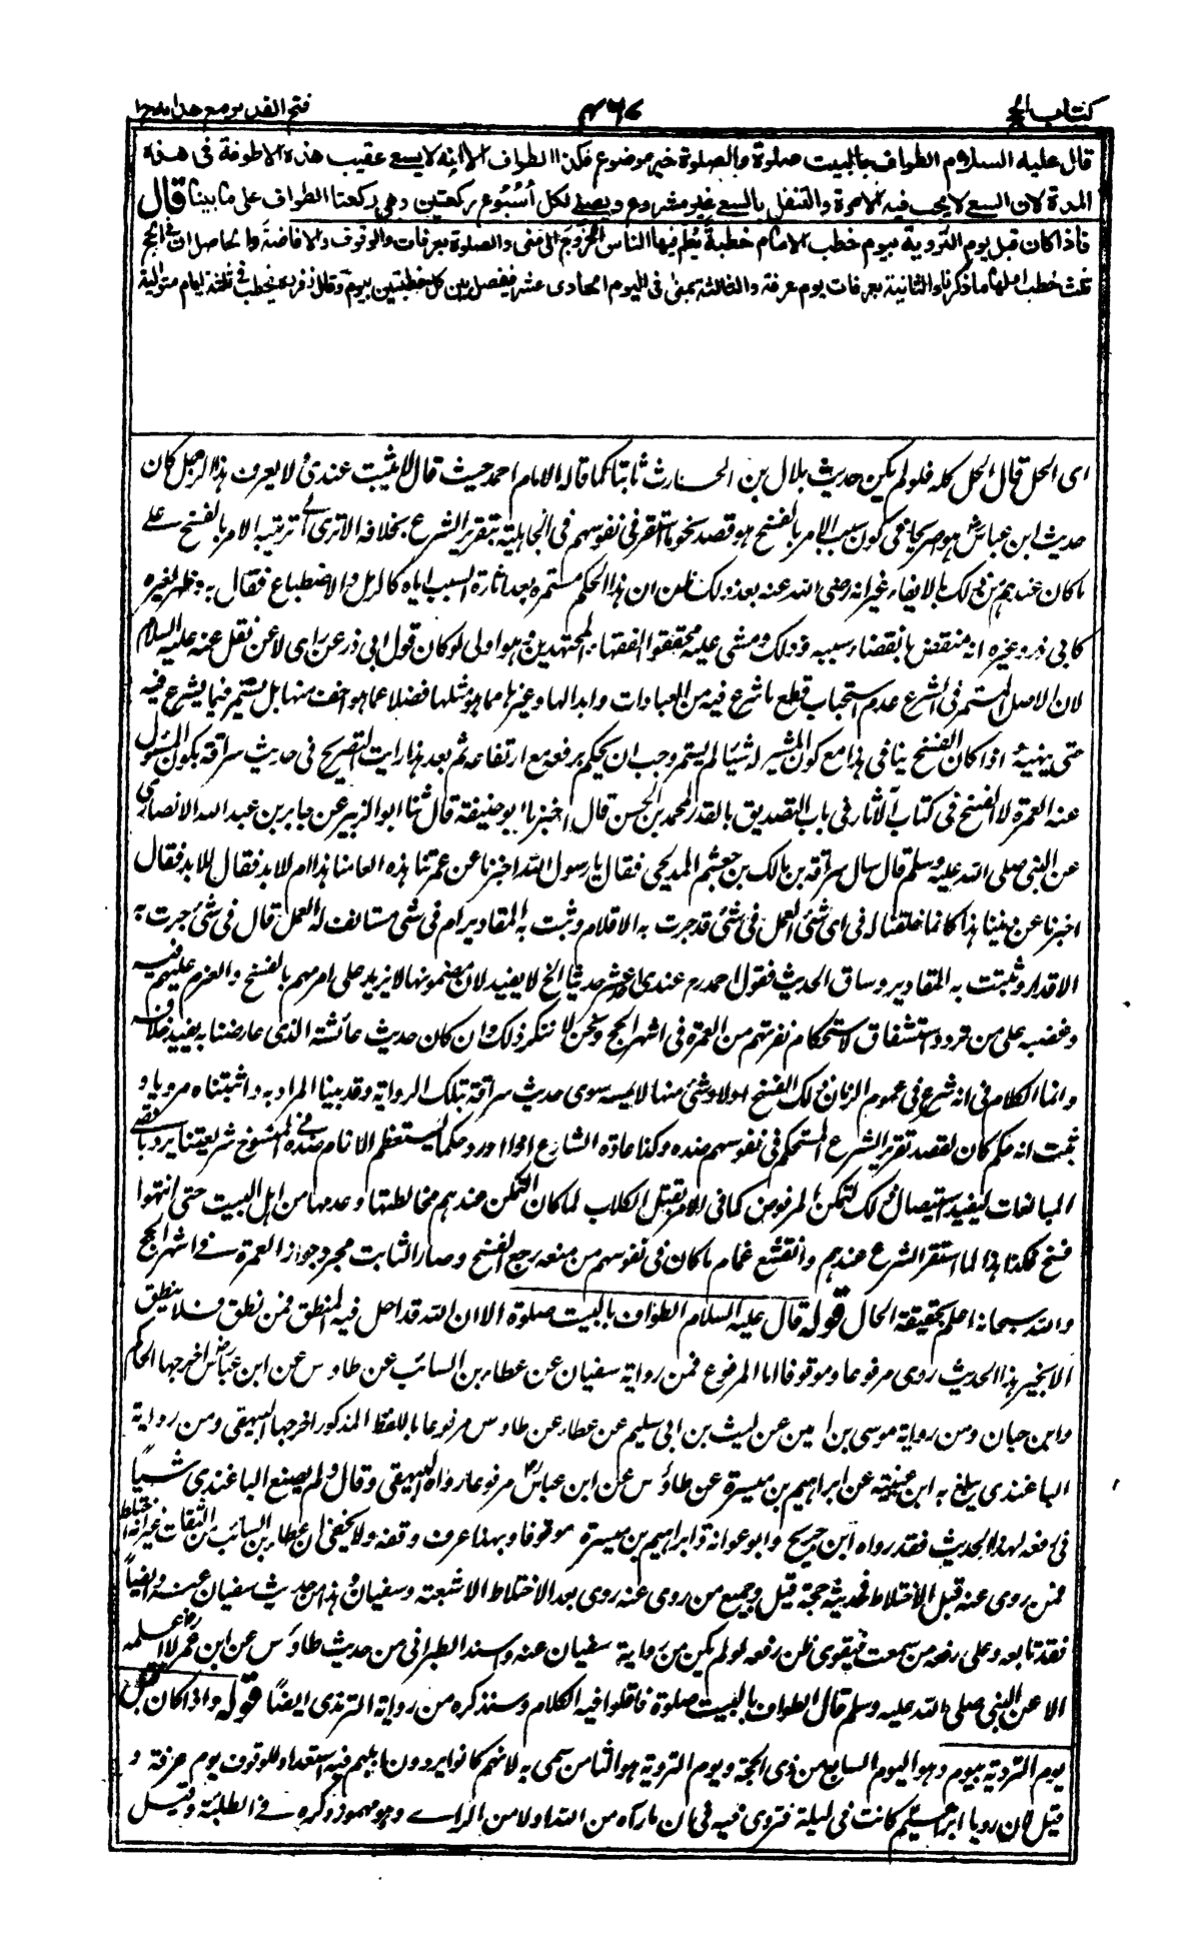 كتاب الحج
٤٦٧
فتح القدير مع هدايه ج١
قال عليه السلام الطواف بالبيت صلوة والصلوة خير موضوع فكذا الطواف الا انه لا يسع عقيب هذه الاطوفة فى هذه
المدة لان السعى لا يجب فيه الا مرة والتنفل بالسعى غير مشروع ويصلى لكل اسبوع ركعتين وهى ركعتا الطواف على ما بينا قال
فاذا كان قبل يوم التروية بيوم خطب الامام خطبة يعلم فيها الناس الخروج الى منى والصلوة بعرفات والوقوف والافاضة والحاصل ان فى الحج
ثلث خطب اولها ما ذكرنا والثانية بعرفات يوم عرفة والثالثة بمنى فى اليوم الحادى عشر فيفصل بين كل خطبتين بيوم وقال زفر رح يخطب فى ثلثة ايام متوالية
اى الحل قال الحل كله فلو لم يكن حديث بلال بن الحارث ثابتا كما قاله الامام احمد حيث قال لا يثبت عندى ولا يعرف هذا الرجل كان
حديث ابن عباس هو صريحا فى كون سبب الامر بالفسخ هو قصد محو ما استقر فى نفوسهم فى الجاهلية بتقرير الشرع بخلافه الا ترى الى ترتيبه الامر بالفسخ على
ما كان عندهم من ذلك بالفاء غير انه رضى الله عنه بعد ذلك ظن ان هذا الحكم مستمر بعد اثارة السبب اياه كالرمل والاضطباع فقال به وظهر لغيره
كابى ذر وغيره انه منقض بانقضاء سببه ذلك ومشى عليه محققوا الفقهاء المجتهدين وهو اولى لو كان قول ابى ذر عن راى لا عن نقل عنه عليه السلام
لان الاصل المستمر فى الشرع عدم استحباب قطع ما شرع فيه من العبادات وابدالها وغيرها مما هو مثلها فضلا عما هو اخف منها بل يستمر فيما يشرع فيه
حتى ينهيه اذا كان الفسخ ينافى هذا مع كون المثير له شيئا لم يستمر وجب ان يحكم برفعه مع ارتفاعه ثم بعد هذا رايت التصريح فى حديث سراقة بكون المسئول
عنه العمرة لا الفسخ فى كتاب الآثار فى باب التصديق بالقدر لمحمد بن الحسن قال اخبرنا ابو حنيفة قال ثنا ابو الزبير عن جابر بن عبد الله الانصارى
عن النبى صلى الله عليه وسلم قال سال سراقة بن مالك بن جعشم المدلجى فقال يا رسول الله اخبرنا عن عمرتنا هذه العامنا هذا ام للابد فقال للابد فقال
اخبرنا عن ديننا هذا كانما خلقنا له فى اى شئ العمل فى شئ قد جرت به الاقلام وثبت به المقادير ام فى شئ مستانف له العمل قال فى شئ جرت به
الاقدار وثبتت به المقادير وساق الحديث فقول احمد رح عندى احد عشر حديثا الخ لا يفيد لان مضمونها لا يزيد على امرهم بالفسخ والعزم عليهم فيه
وغضبه على من تردد استشفاقا لاستحكام نفرتهم من العمرة فى اشهر الحج ونحن لا ننكر ذلك وان كان حديث عائشة الذى عارضنا به يفيد خلافه
وانما الكلام فى انه شرع فى عموم الزمان ذلك الفسخ اولا وشئ منها لا يمسه سوى حديث سراقة بتلك الرواية وقد بينا المراد به واثبتناه مرويا و
ثبت انه حكم كان لقصد تقرير الشرع المستحكم فى نفوسهم ضده وكذا عادة الشارع اذا اورد حكما يستعظم الانام ضده المنسوخ فى شريعتنا يرد باقصى
المبالغات ليفيد استيصال ذلك التمكن المرفوض كما فى الامر بقتل الكلاب لما كان التمكن عندهم مخالطتها وعدها من اهل البيت حتى انتهوا
فنسخ فكذا هذا لما استقر الشرع عندهم وانقشع غمام ما كان فى نفوسهم من منعه رجع الفسخ وصار الثابت مجرد جواز العمرة فى اشهر الحج
والله سبحانه اعلم بحقيقة الحال قوله قال عليه السلام الطواف بالبيت صلوة الا ان الله قد احل فيه المنطق فمن نطق فلا ينطق
الا بخير هذا الحديث روى مرفوعا وموقوفا اما المرفوع فمن رواية سفيان عن عطاء بن السائب عن طاوس عن ابن عباس اخرجها الحاكم
وابن حبان ومن رواية موسى بن اعين عن ليث بن ابى سليم عن عطاء عن طاوس مرفوعا باللفظ المذكور اخرجها البيهقى ومن رواية
الباغندى يبلغ به ابن عيينة عن ابراهيم بن ميسرة عن طاؤس عن ابن عباس مرفوعا رواه البيهقى وقال ولم يصنع الباغندى شيئا
فى رفعه لهذا الحديث فقد رواه ابن جريج وابو عوانة وابراهيم بن ميسرة موقوفا وبهذا عرف وقفه ولا يخفى ان عطاء بن السائب من الثقات غير انه اختلط
فمن روى عنه قبل الاختلاط فحديثه حجة قيل وجميع من روى عنه روى بعد الاختلاط الا شعبة وسفيان وهذا من حديث سفيان عنه وايضا
فقد تابعه وعلى رفعه من سمعت فيقوى ظن رفعه لو لم يكن من رواية سفيان عنه واسند الطبرانى من حديث طاؤس عن ابن عمر لا اعلمه
الا عن النبى صلى الله عليه وسلم قال الطواف بالبيت صلوة فاقلوا فيه الكلام وسنذكره من رواية الترمذى ايضا قوله واذا كان قبل
يوم التروية بيوم وهو اليوم السابع من ذى الحجة ويوم التروية هو الثامن سمى به لانهم كانوا يروون ابلهم فيه استعدادا للوقوف يوم عرفة و
قيل لان رويا ابراهيم كانت فى ليلة فتروى فيه فى ان ما رآه من الله اولا من الراے وهو مهموز ذكره فى الطلبة وقيل